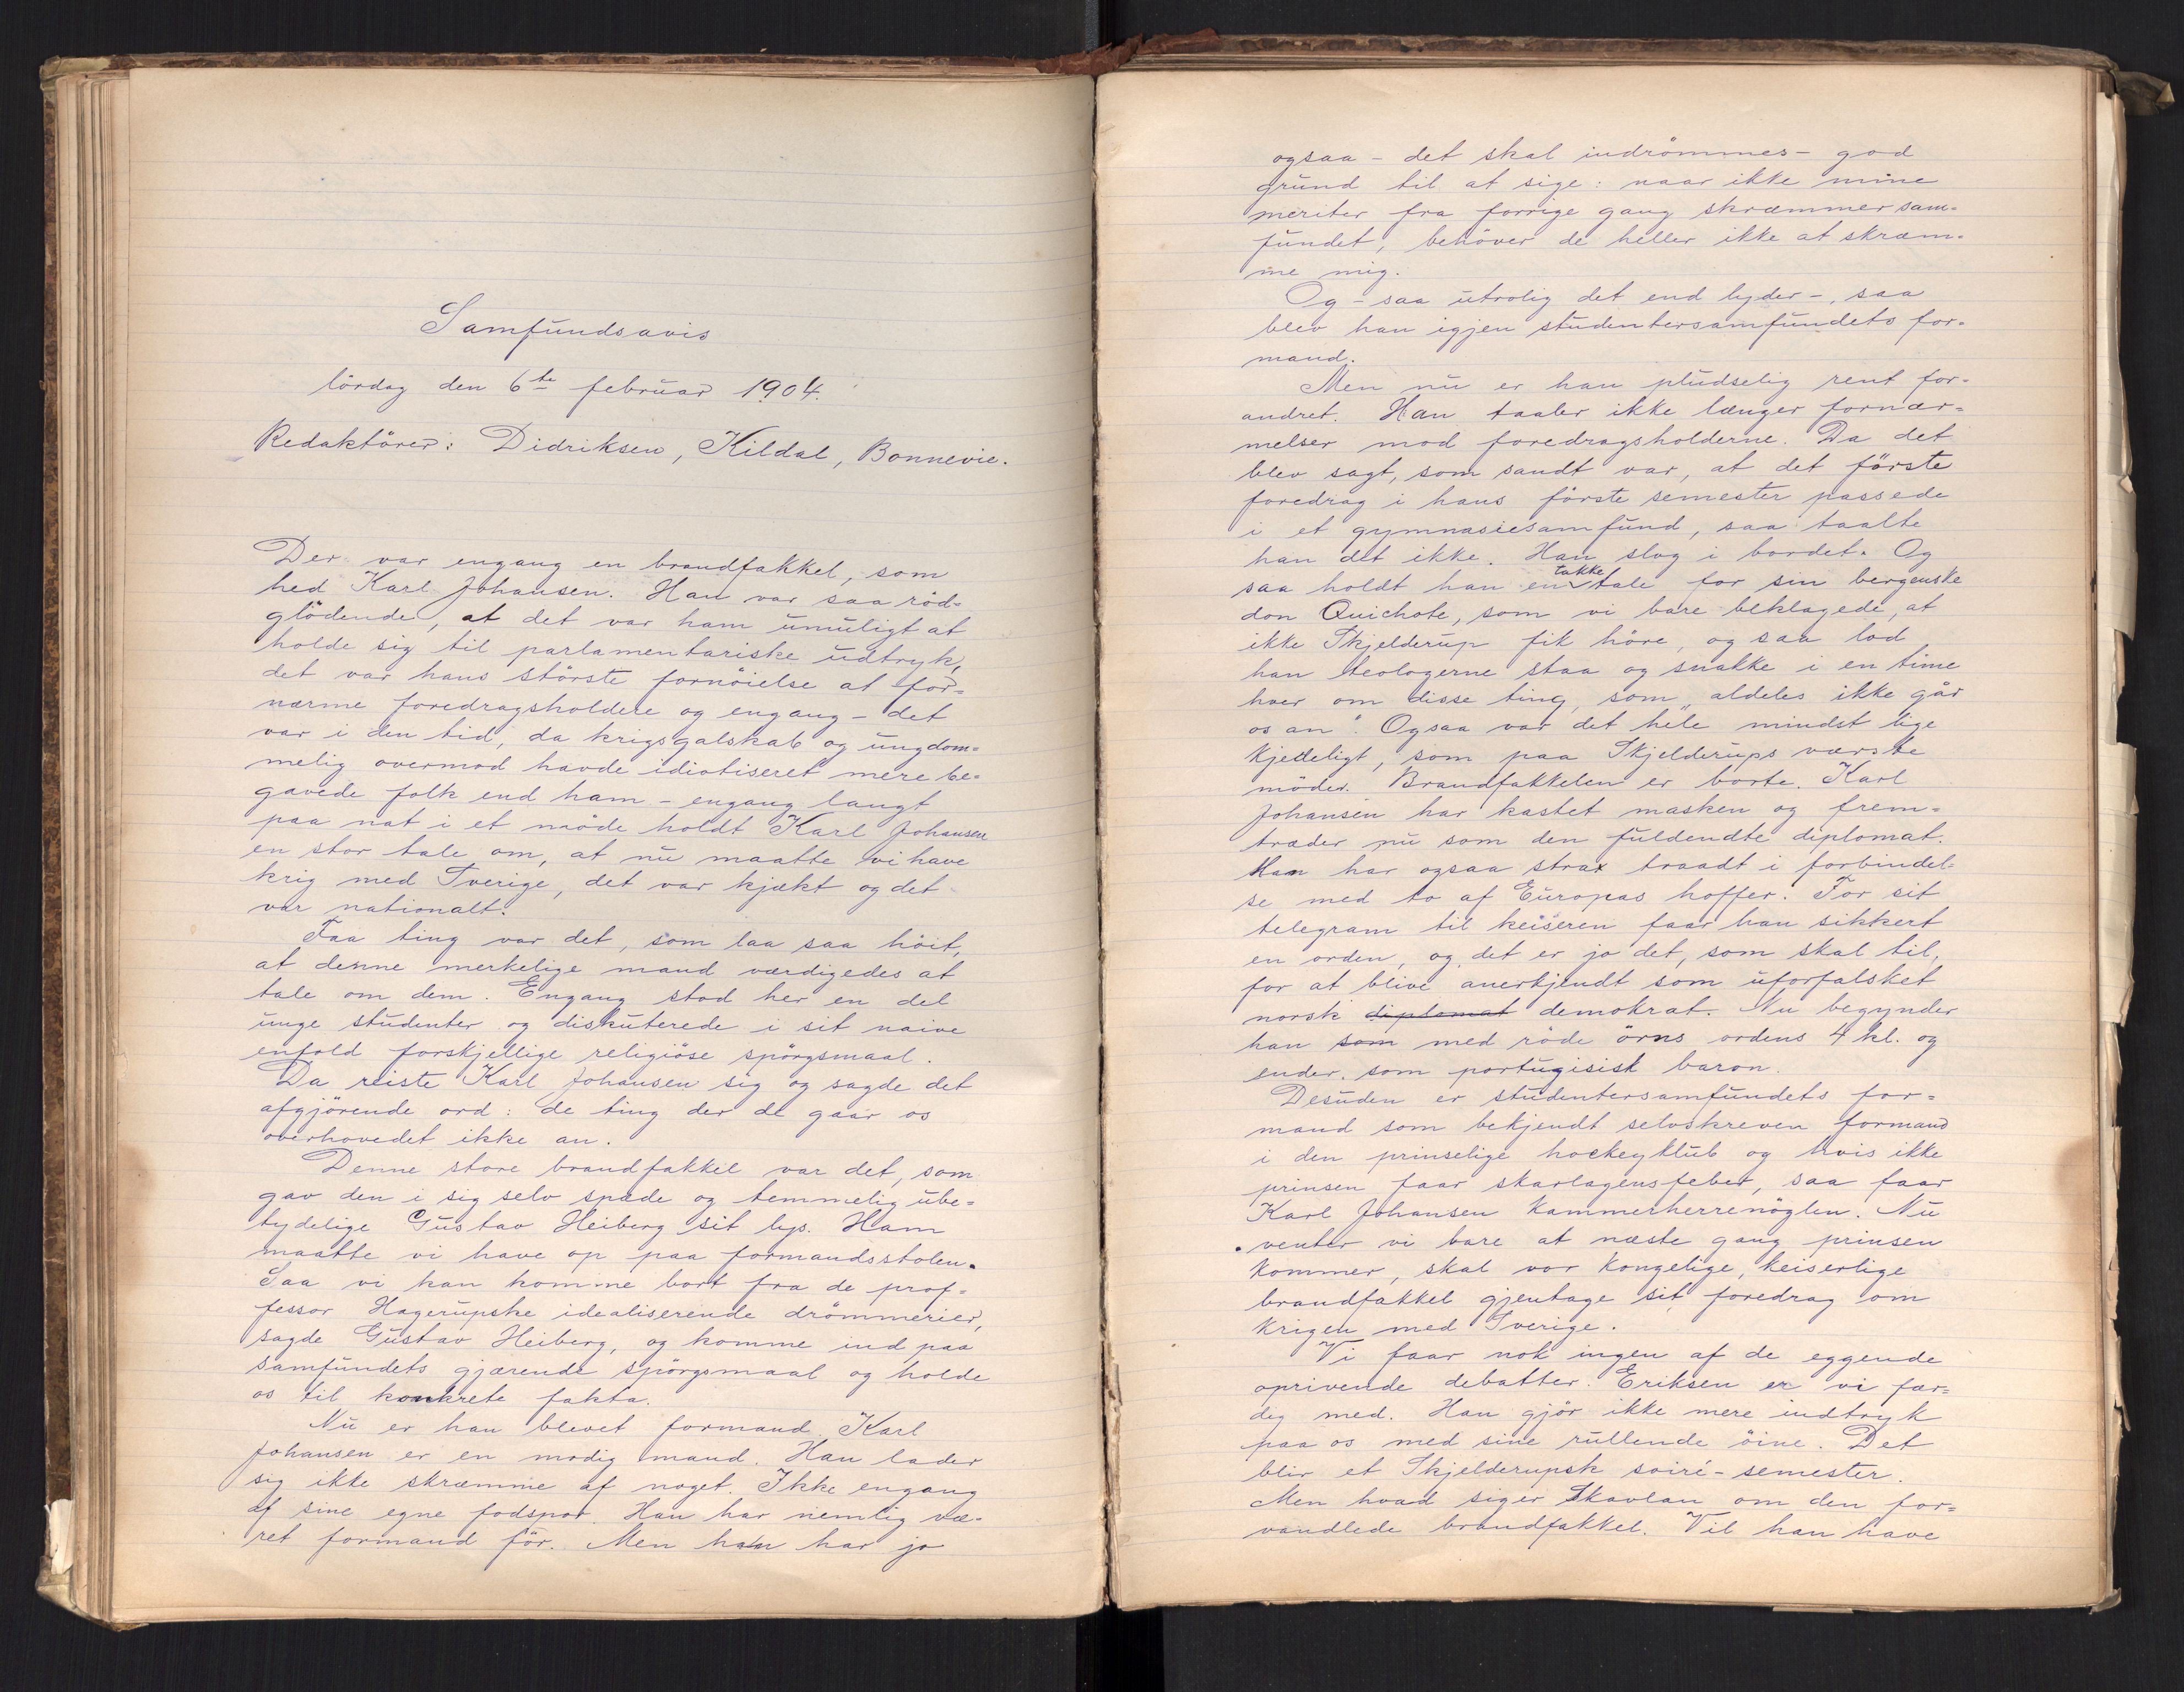 Samfundsavis
lördag den 6te februar 1904.
Redaktörer: Didriksen, Kildal, Bonnevie.
Der var engang en brandfakkel, som
hed Karl Johansen. Han var saa röd-
glödende, at det var ham umuligt at
holde sig til parlamentariske udtryk,
det var hans störste fornöielse at for-
nærme foredragsholdere og engang - det
var i den tid, da krigsgalskab og ungdom-
melig overmod havde idiotiseret mere be-
gavede folk end ham - engang langt
paa nat i et möde holdt Karl Johansen
en stor tale om, at nu maatte vi have
krig med Sverige, det var kjækt og det
var nationalt.
Faa ting var det, som laa saa höit,
at denne merkelige mand værdigedes at
tale om dem. Engang stod her en del
unge studenter og diskuterede i sit naive
enfold forskjellige religiöse spörgsmaal.
Da reiste Karl Johansen sig og sagde det
afgjörende ord: de ting der de gaar os
overhovedet ikke an.
Denne store brandfakkel var det, som
gav den i sig selv spæde og temmelig ube-
tydelige Gustav Heiberg sit lys. Ham
maatte vi have op paa formandsstolen.
Saa vi kan komme bort fra de prof-
fessor Hagerupske idealiserende drömmerier,
sagde Gustav Heiberg, og komme ind paa
samfundets gjærende spörgsmaal og holde
os til konkrete fakta.
Nu er han blevet formand. Karl
Johansen er en modig mand. Han lader
sig ikke skræmme af noget. Ikke engang
af sine egne fodspor. Han har nemlig væ-
ret formand för. Men han har jo
ogsaa - det skal indrömmes - god
grund til at sige: naar ikke mine
meriter fra forrige gang skræmmer sam-
fundet, behöver de heller ikke at skræm-
me mig.
Og - saa utrolig det end lyder -, saa
blev han igjen studentersamfundets for-
mand.
Men nu er han pludselig rent for-
andret. Han taaler ikke længer fornær-
melser mod foredragsholderne. Da det
blev sagt, som sandt var, at det förste
foredrag i hans förste semester passede
i et gymnasiesamfund, saa taalte
han det ikke. Han slog i bordet. Og
saa holdt han en takketale for sin bergenske
don Quichote, som vi bare beklagede, at
ikke Skjelderup fik höre, og saa lod
han teologerne staa og snakke i en time
hver om disse ting, som „aldeles ikke går
os an". Ogsaa var det hele mindst lige
kjedeligt, som paa Skjelderups værste
möder. Brandfakkelen er borte. Karl
Johansen har kastet masken og frem-
træder nu som den fuldendte diplomat.
Han har ogsaa strax traadt i forbindel-
se med to af Europas hoffer. For sit
telegram til keiseren faar han sikkert
en orden, og det er jo det, som skal til,
for at blive anerkjendt som uforfalsket
norsk diplomat demokrat. Nu begynder
han som med röde örns ordens 4 kl. og
ender som portugisisk baron.
Desuden er studentersamfundets for-
mand som bekjendt selvskreven formand
i den prinselige hockeyklub og hvis ikke
prinsen faar skarlagensfeber, saa faar
Karl Johansen kammerherrenöglen. Nu
venter vi bare at næste gang prinsen
kommer, skal vor kongelige, keiserlige
brandfakkel gjentage sit foredrag om
krigen med Sverige.
Vi faar nok ingen af de eggende
oprivende debatter. Eriksen er vi fær-
dig med. Han gjör ikke mere indtryk
paa os med sine rullende öine. Det
blir et Skjelderupsk soiré-semester.
Men hvad siger Skavlan om den for-
vandlede brandfakkel. Vil han have